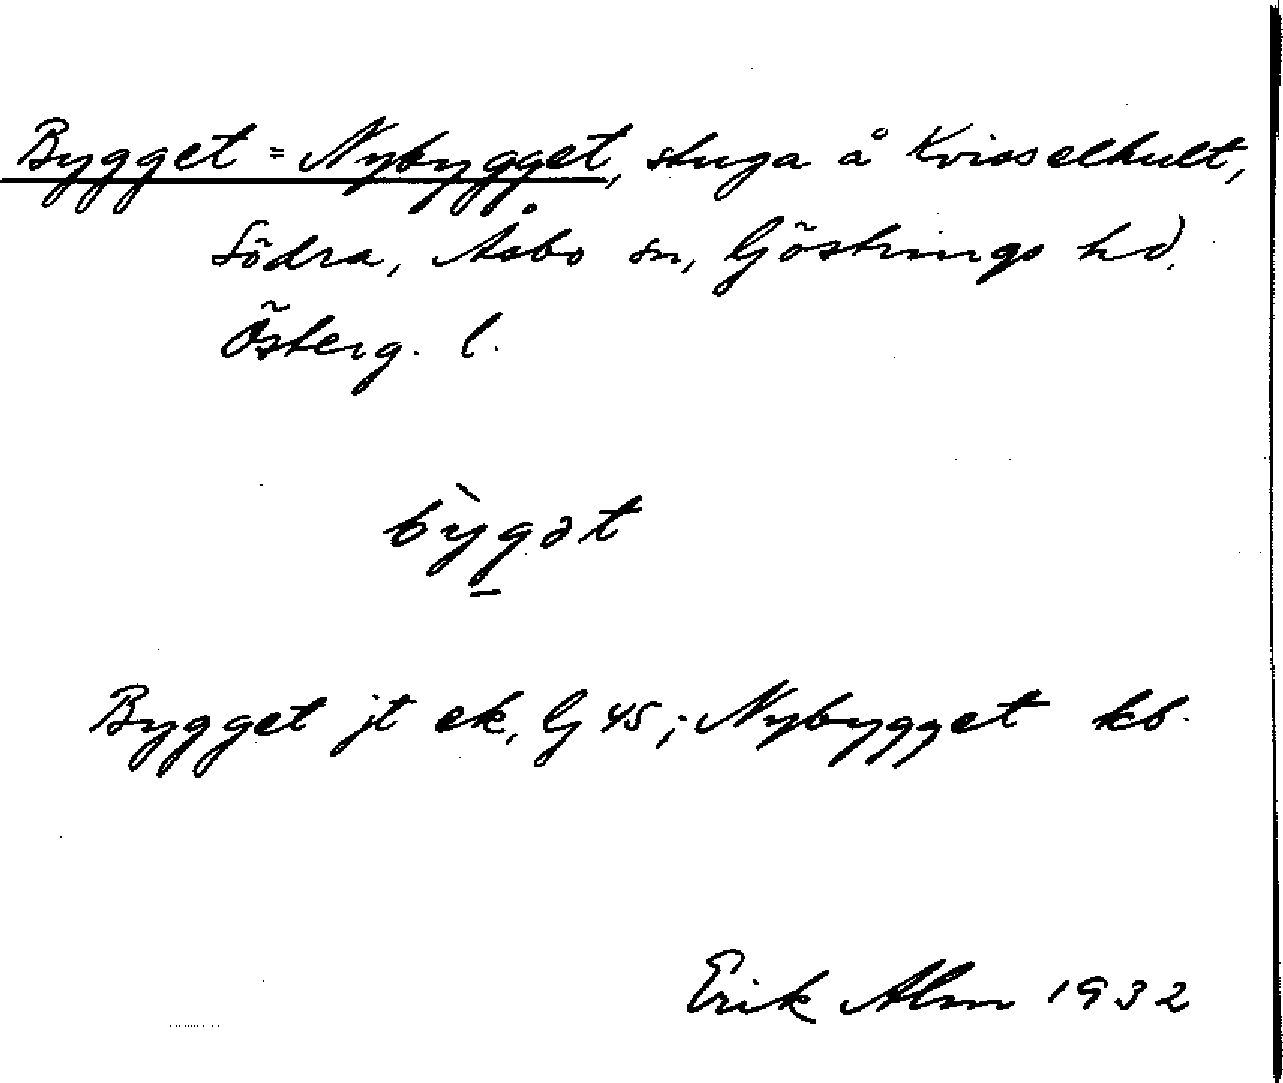 Bygget = Nybygget, stuga å Kvisselhult,
Södra, Åsbo sn, Göstrings hd.
Österg. l.
bỳgət
Bygget jt ek, Gj 45; Nybygget kb.
Erik Alm 1932